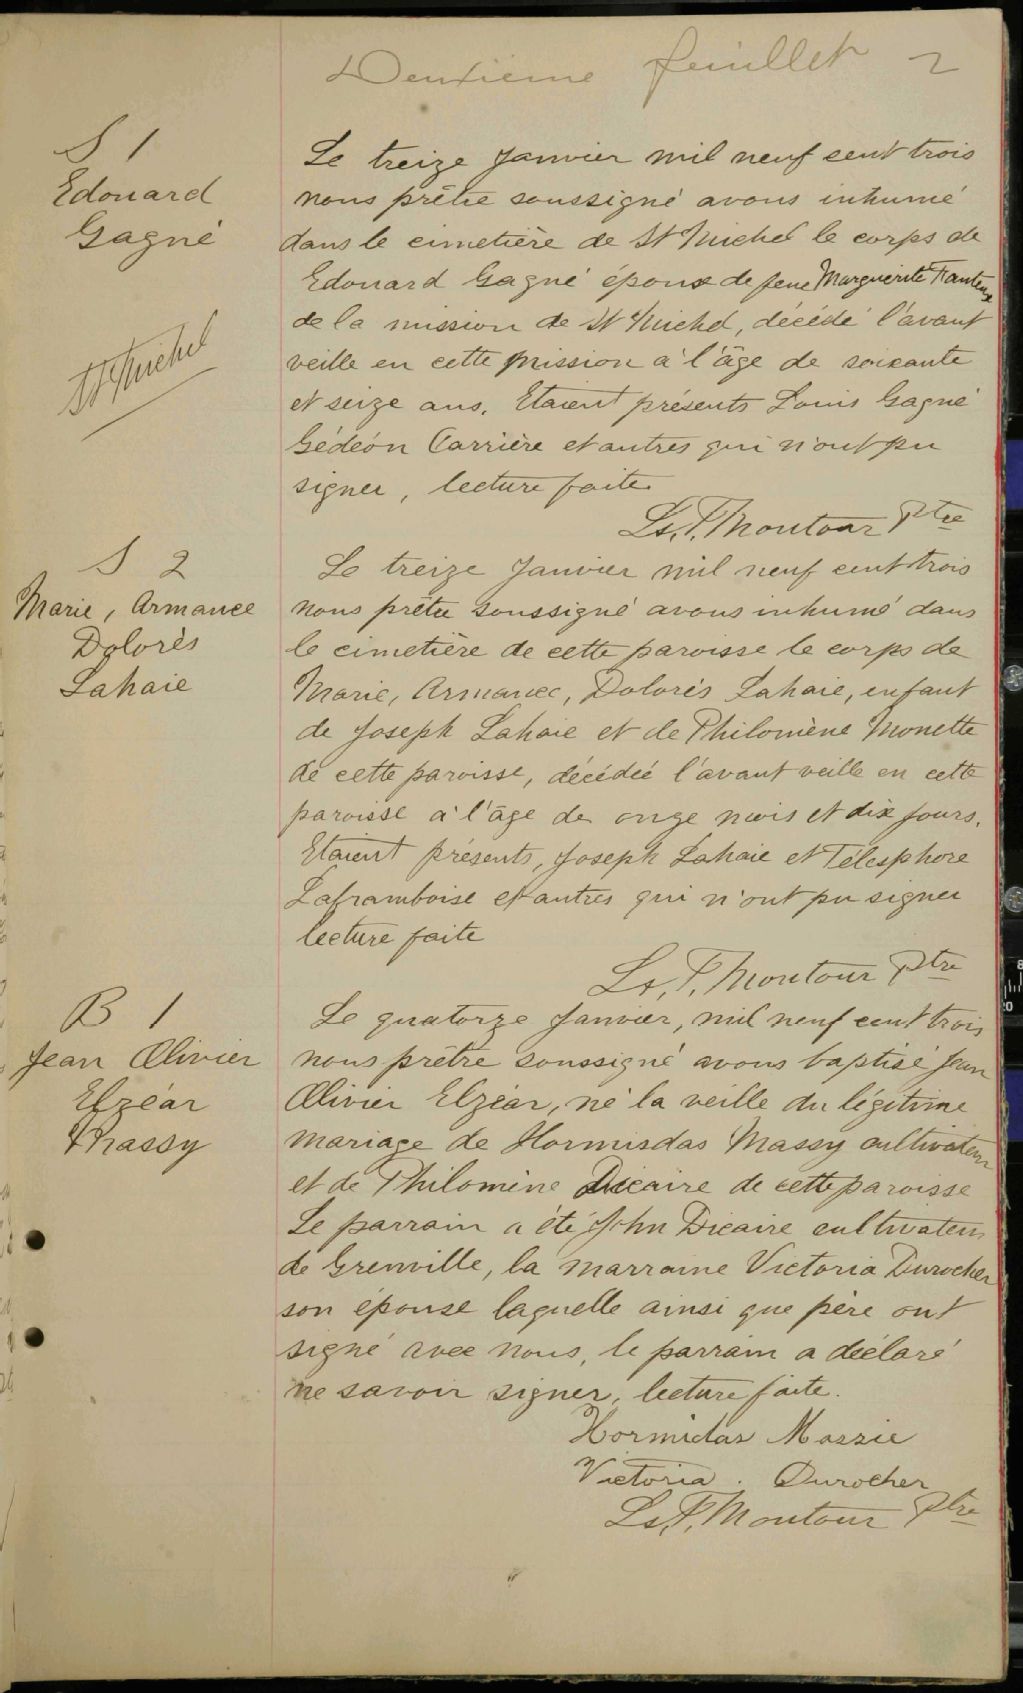 Deuxième feuillet 2
S 1
Edouard
Gagné
St Michel
Le treize Janvier mil neuf cent trois
nous prêtre soussigné avons inhumé
dans le cimetière de St Michel le corps de
Edouard Gagné époux de feue Marguerite
de la mission de St Michel, décédé l'avant
veille en cette mission à l'âge de soixante
et seize ans. Etaient présents Louis Gagné
Gédéon Carrière et autres qui n'ont pu
signer, lecture faite
Ls. P. Montour Ptre
S 2
Marie, Armance
Dolorès
Lahaie
Le treize Janvier mil neuf cent trois
nous prêtre soussigné avons inhumé dans
le cimetière de cette paroisse le corps de
Marie, Armance, Dolorès Lahaie, enfant
de Joseph Lahaie et de Philomène Monette
de cette paroisse, décédée l'avant veille en cette
paroisse à l'âge de onze mois et dix jours.
Etaient présents, Joseph Lahaie et Télesphore
Laframboise et autres qui n'ont pu signer
lecture faite
Ls. P. Montour Ptre
B 1
Jean Olivier
Elzéar
Massy
Le quatorze Janvier, mil neuf cent trois
nous prêtre soussigné avons baptisé Jean
Olivier Elzéar, né la veille du légitime
mariage de Hormisdas Massy cultivateur
et de Philomène Dicaire de cette paroisse
Le parrain a été John Dicaire cultivateur
de Grenville, la marraine Victoria Durocher
son épouse laquelle ainsi que père ont
signé avec nous, le parrain a déclaré
ne savoir signer, lecture faite.
Hormidas Massie
Victoria . Durocher
Ls. P. Montour Ptre